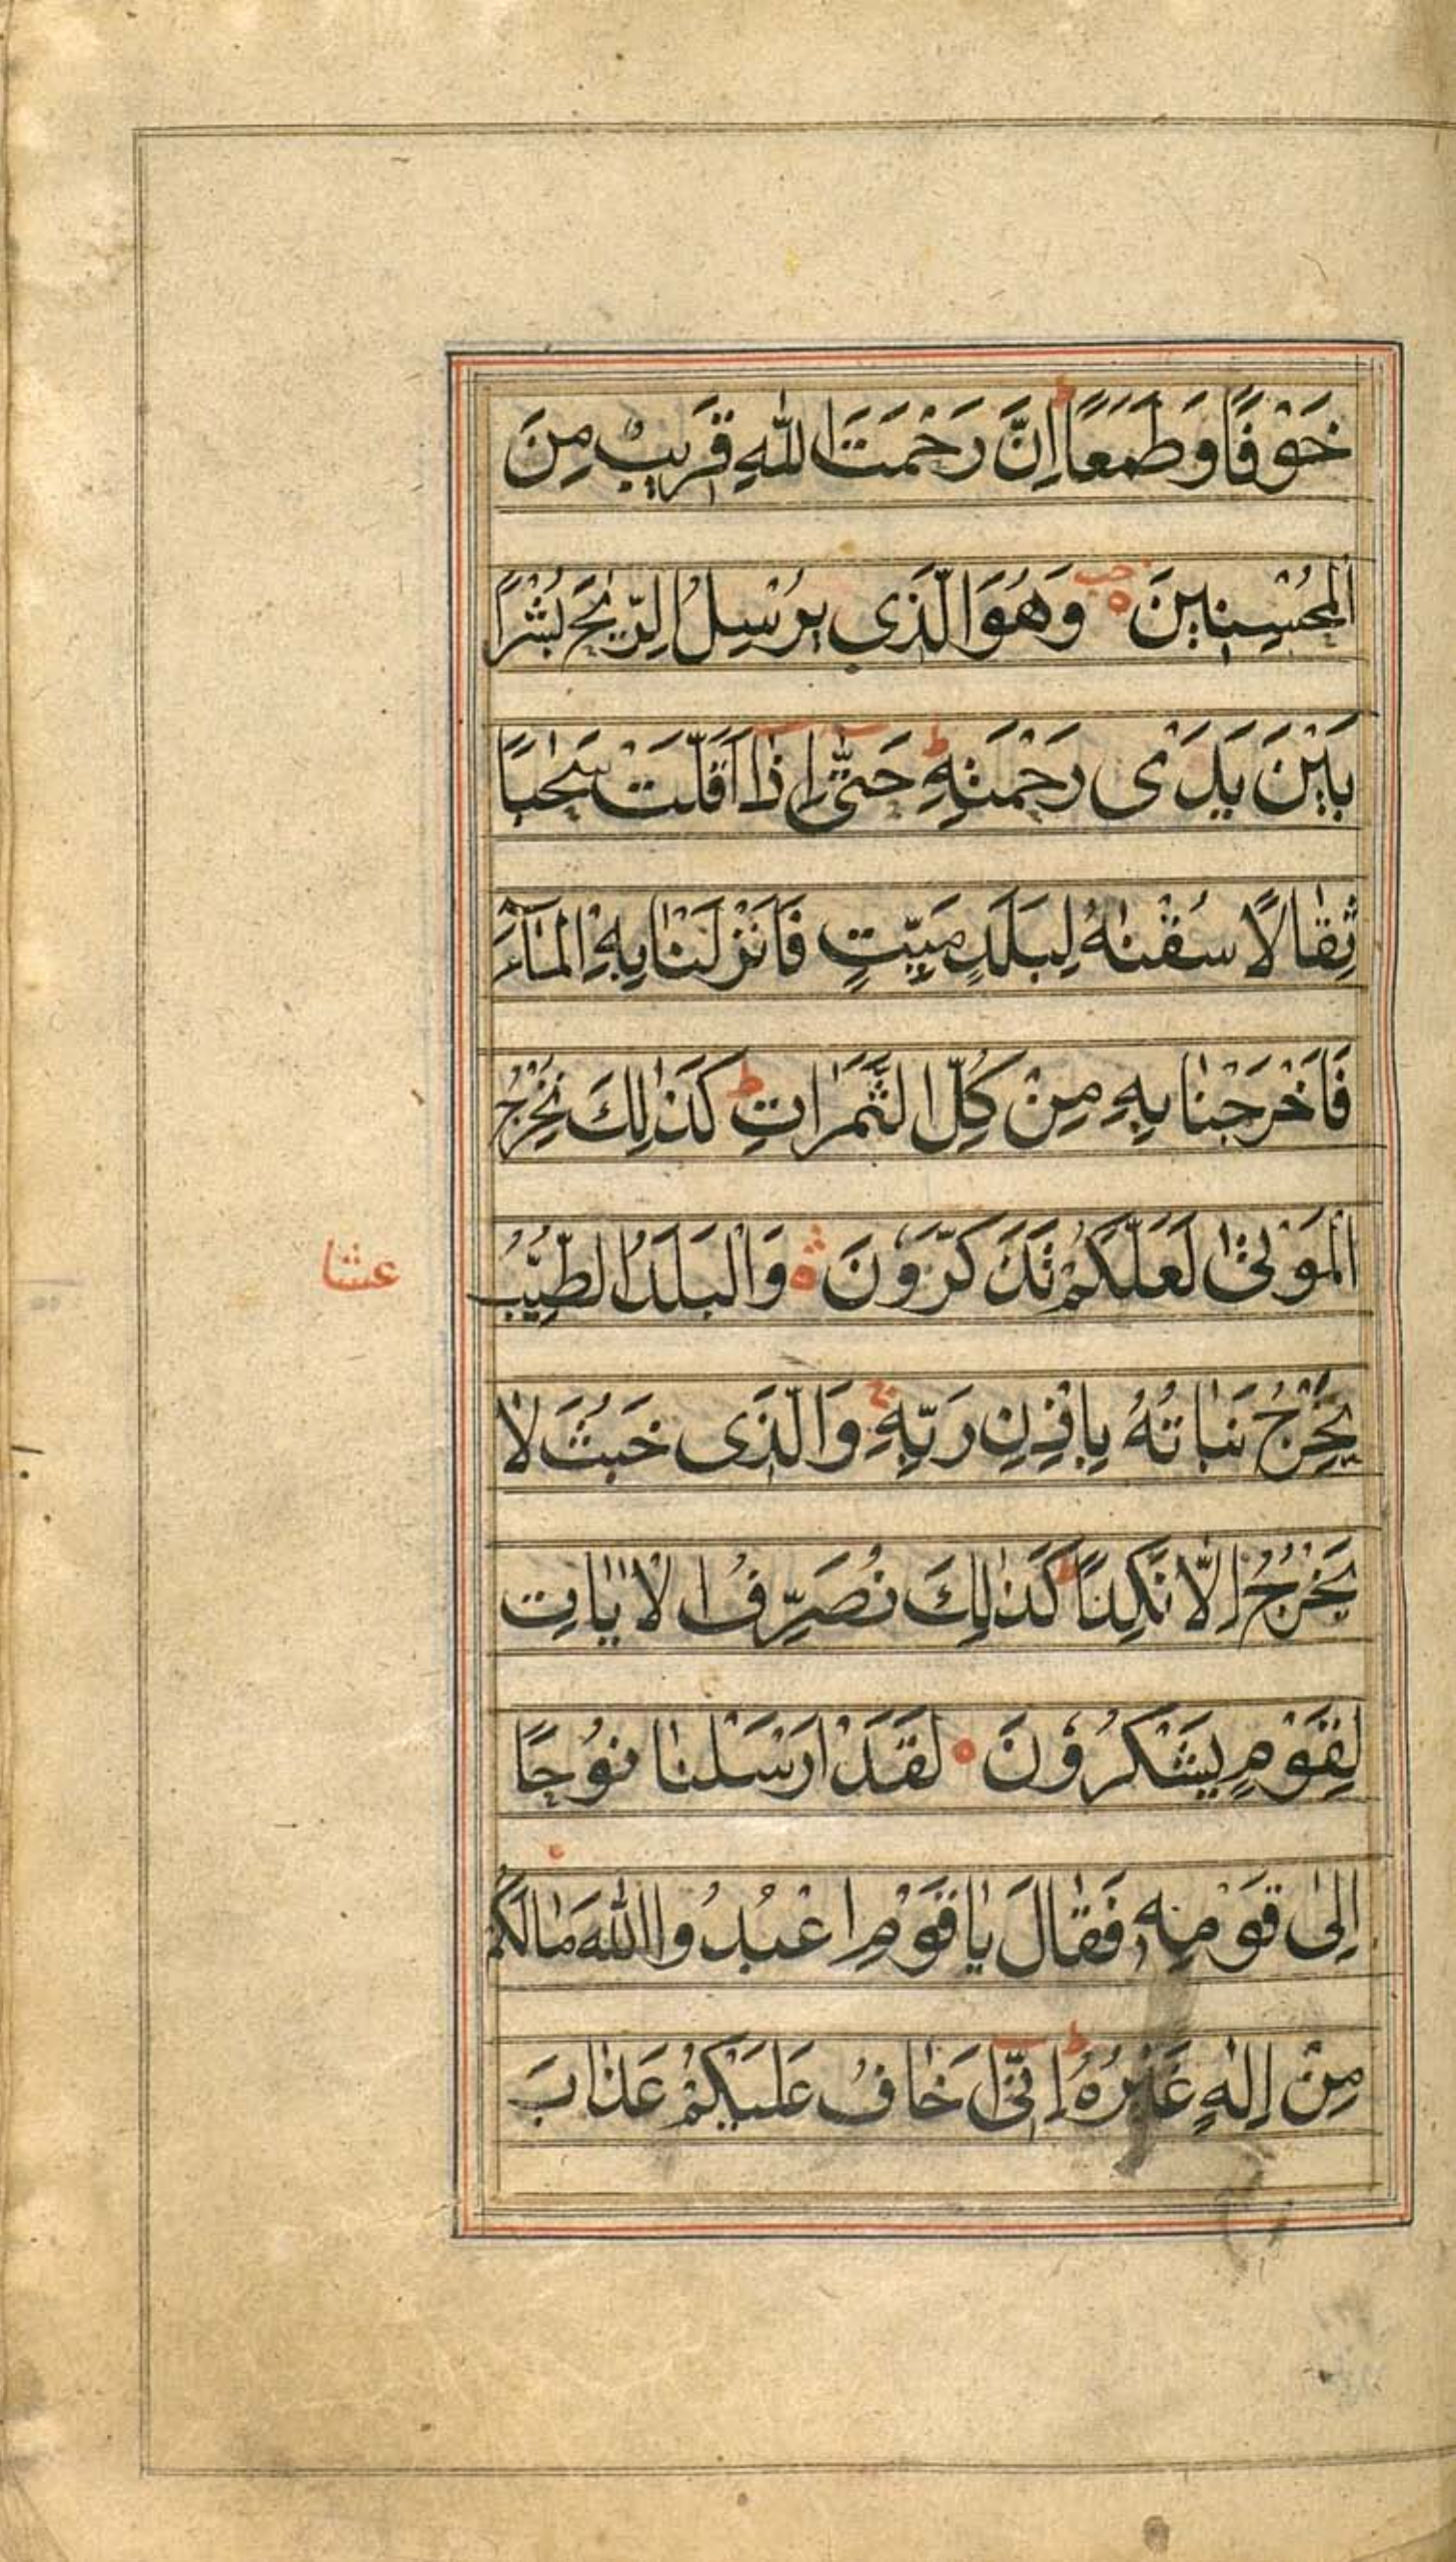 خَوْفًا وَطَمَعًا ط اِنَّ رَحْمَتَ اللّٰهِ قَرِيبٌ مِنَ
الْمُحْسِنِينَ ه وَهُوَ الَّذِي يُرْسِلُ الرِّيٰحَ بُشْرًا
بَيْنَ يَدَىْ رَحْمَتِهٖ ط حَتّٰى اِذَا اَقَلَّتْ سَحٰبًا
ثِقٰالًا سُقْنٰهُ لِبَلَدٍ مَيِّتٍ فَاَنْزَلْنٰا بِهِ الْمٰآءَ
فَاَخْرَجْنٰا بِهٖ مِنْ كُلِّ الثَّمَرٰاتِ ط كَذٰلِكَ نُخْرِجُ
الْمَوْتٰى لَعَلَّكُمْ تَذَكَّرُونَ ه وَالْبَلَدُ الطَّيِّبُ
عشا
يَخْرُجُ نَبٰاتُهُ بِاِذْنِ رَبِّهٖ ج وَالَّذِى خَبُثَ لٰا
يَخْرُجُ اِلّٰا نَكِدًا ط كَذٰلِكَ نُصَرِّفُ الْاٰيٰاتِ
لِقَوْمٍ يَشْكُرُونَ ه لَقَدْ اَرْسَلْنٰا نُوْحًا
اِلٰى قَوْمِهٖ فَقٰالَ يٰا قَوْمِ اعْبُدُوا اللّٰهَ مٰا لَكُمْ
مِنْ اِلٰهٍ غَيْرُهُ ط اِنِّى اَخٰافُ عَلَيْكُمْ عَذٰابَ